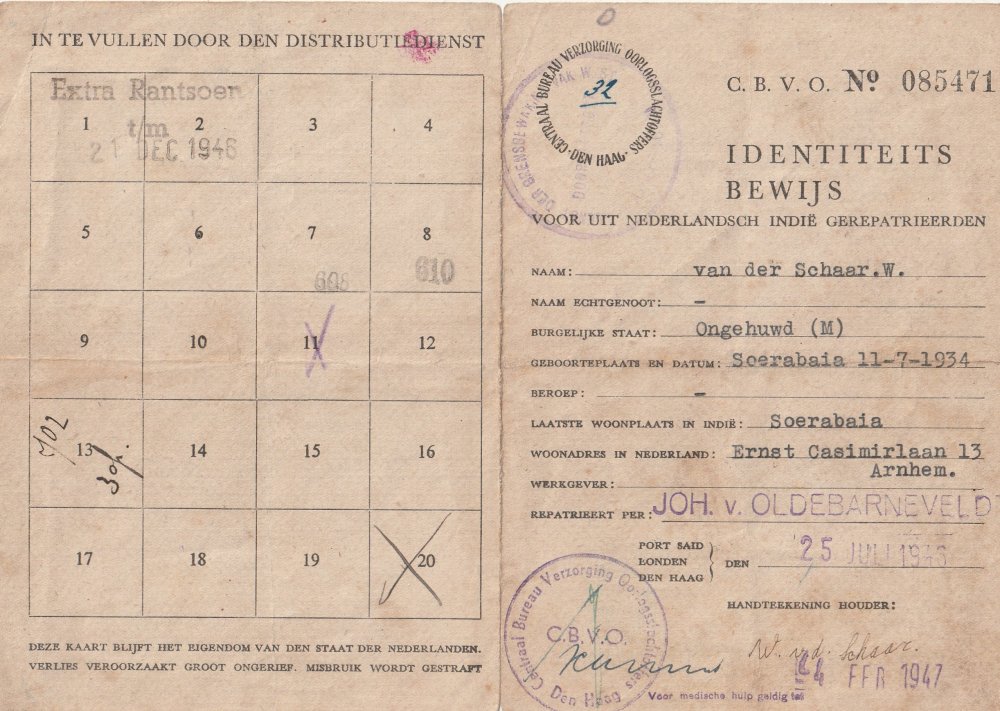 IN TE VULLEN DOOR DEN DISTRIBUTIEDIENST
Extra Rantsoen
t/m
21 DEC 1946
1 2 3 4
5 6 7 8
608 610
9 10 11 12
13 14 15 16
17 18 19 20
DEZE KAART BLIJFT HET EIGENDOM VAN DEN STAAT DER NEDERLANDEN.
VERLIES VEROORZAAKT GROOT ONGERIEF. MISBRUIK WORDT GESTRAFT
CENTRAAL BUREAU VERZORGING OORLOGSSLACHTOFFERS
·DEN HAAG·
32
C.B.V.O. No 085471
IDENTITEITS
BEWIJS
VOOR UIT NEDERLANDSCH INDIË GEREPATRIEERDEN
NAAM: van der Schaar.W.
NAAM ECHTGENOOT: –
BURGELIJKE STAAT: Ongehuwd (M)
GEBOORTEPLAATS EN DATUM: Soerabaia 11-7-1934
BEROEP: –
LAATSTE WOONPLAATS IN INDIË: Soerabaia
WOONADRES IN NEDERLAND: Ernst Casimirlaan 13
Arnhem.
WERKGEVER:
REPATRIEERT PER: JOH. v. OLDEBARNEVELD
PORT SAID
LONDEN
DEN HAAG
DEN 25 JULI 1946
HANDTEEKENING HOUDER:
W. v.d. Schaar.
Centraal Bureau Verzorging Oorlogsslachtoffers
C.B.V.O.
Den Haag
Voor medische hulp geldig tot
FEB 1947